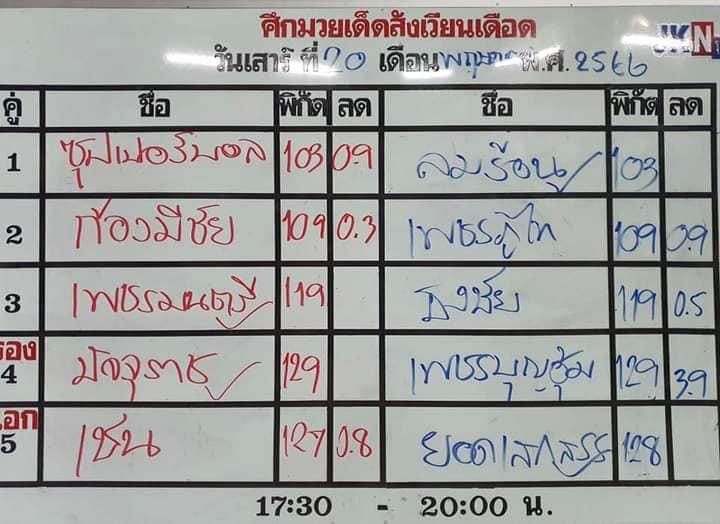 ศึกมวยเด็ดสังเวียนเดือด
JKN
วันเสาร์ ที่ 20 เดือน พ.ศ. 2566
คู่ ชื่อ พิกัด ลด ชื่อ พิกัด ลด
1 ซุปเปอร์บอล 103 0.9 ลมร้อน 103
2 ก้องมีชัย 109 0.3 เพชรภูไท 109 0.9
3 เพชรมนตรี 119 ธงชัย 119 0.5
รอง
4 มัจจุราช 129 เพชรบุญชุ่ม 129 3.9
เอก
5 เชน 127 0.8 128
17:30 - 20:00 น.